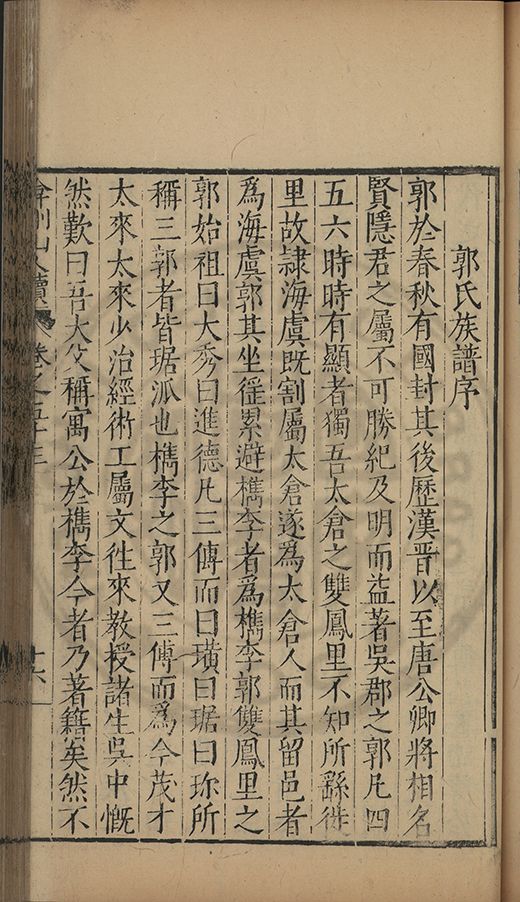 郭氏族譜序
郭於春秋有國封其後歷漢晉以至唐公卿將相名
賢隱君之屬不可勝紀及明而益著吳郡之郭凡四
五六時時有顯者獨吾太倉之雙鳳里不知所繇徙
里故隸海虞既割屬太倉遂為太倉人而其留邑者
為海虞郭其坐徭累避檇李者為檇李郭雙鳳里之
郭始祖曰大秀曰進德凡三傳而曰璜曰琚曰珎所
稱三郭者皆琚派也檇李之郭又三傳而為今茂才
太來太來少治經術工屬文徃來教授諸生吳中慨
然歎曰吾大父稱寓公於檇李今者乃著籍矣然不
弇州山人續 卷之五十三 十六